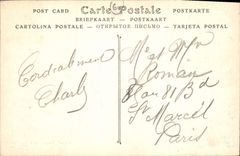 POST CARD Carte Postale POSTKARTE
BRIEFKAART — POSTKAART
CARTOLINA POSTALE — ОТКРЫТОЕ ПИСЬМО — TARJETA POSTAL
Cordialement
Charly
Roman
St Marcel
Paris